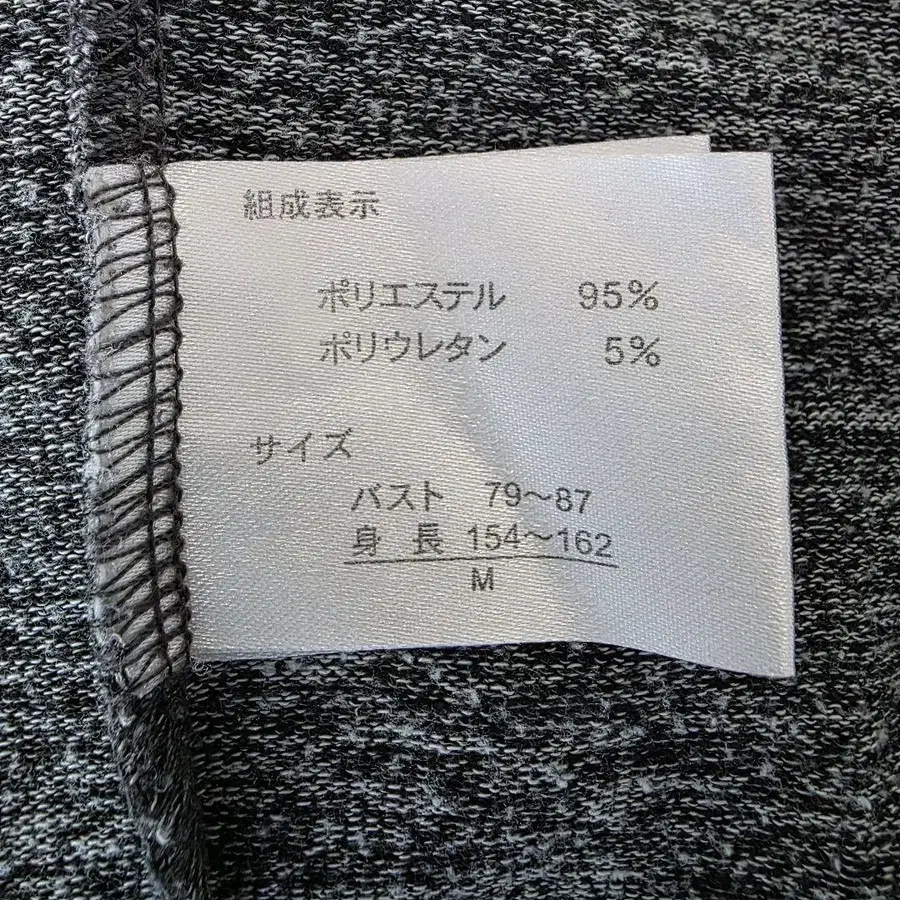 組成表示
ポリエステル 95%
ポリウレタン 5%
サイズ
バスト 79～87
身長 154～162
M